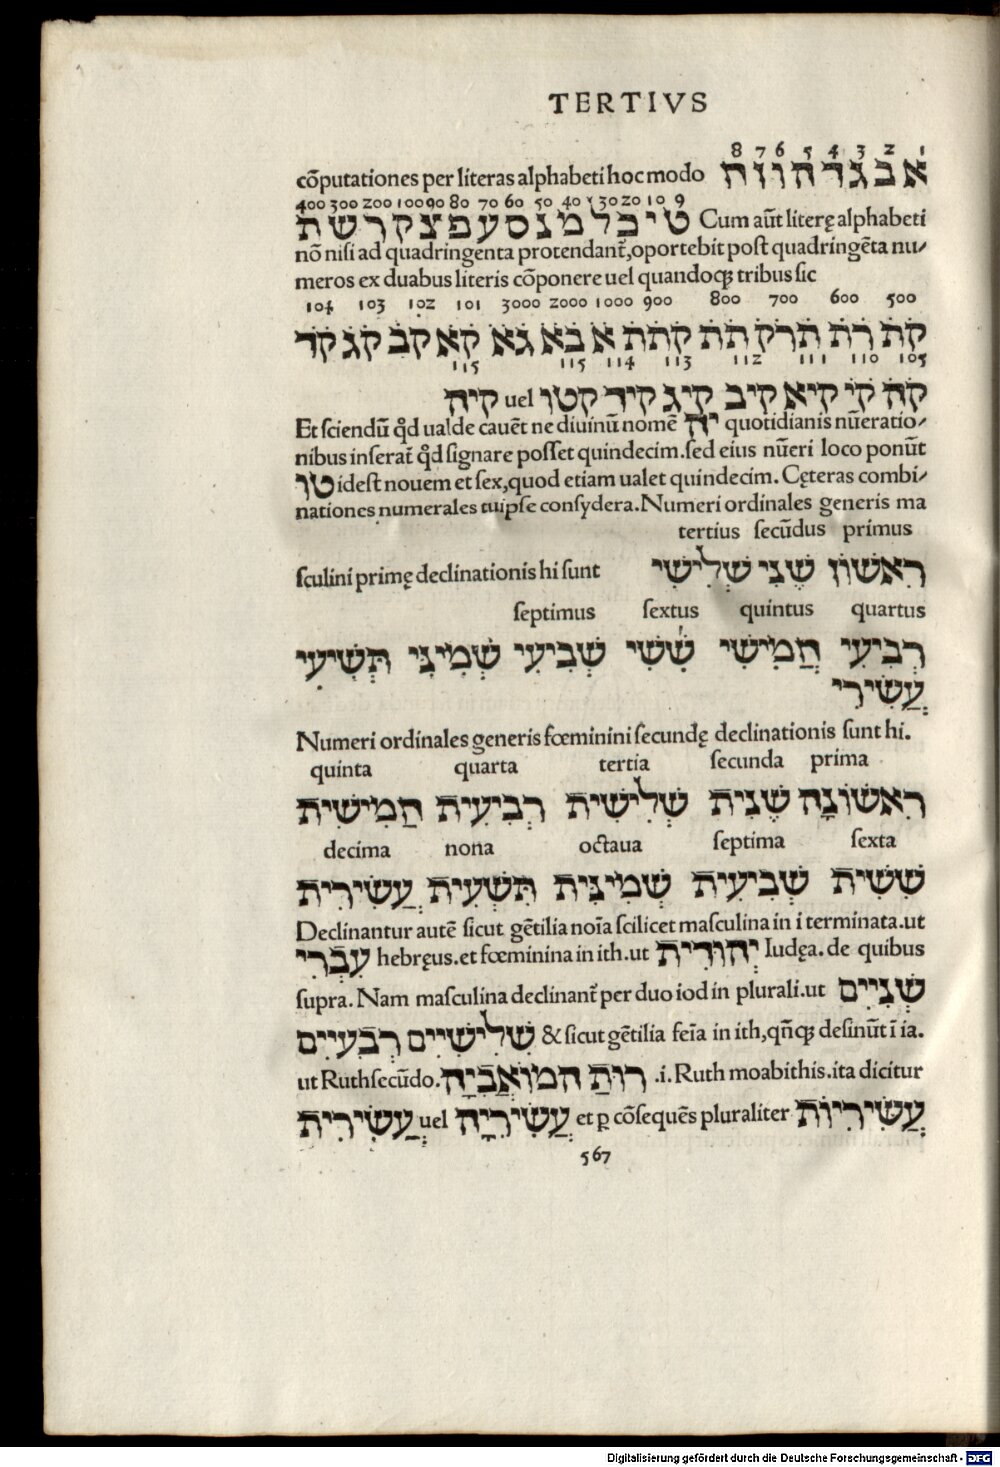 TERTIVS
8 7 6 5 4 3 2 1
cõputationes per literas alphabeti hoc modo א ב ג ד ה ו ז ח
400 300 200 100 90 80 70 60 50 40 30 20 10 9
ט י כ ל מ נ ס ע פ צ ק ר ש ת Cum aũt literę alphabeti
nõ nisi ad quadringenta protendant᷑, oportebit post quadringẽta nu⸗
meros ex duabus literis cõponere uel quandoqꝫ tribus sic
104 103 102 101 3000 2000 1000 900 800 700 600 500
קת רת תרק תת קתת א בא גא קא קב קג קד
115 115 114 113 112 111 110 105
קה קי קיא קיב קיג קיד קטו uel קיה
Et sciendũ ꝙd ualde cauẽt ne diuinũ nomẽ יה quotidianis nũeratio⸗
nibus inserat᷑ ꝙd signare posset quindecim. sed eius nũeri loco ponũt
טו idest nouem et sex, quod etiam ualet quindecim. Cęteras combi⸗
nationes numerales tuipse consydera. Numeri ordinales generis ma
tertius secũdus primus
sculini primę declinationis hi sunt רִאשׁוֹן שֶׁנִי שְׁלִישִׁי
septimus sextus quintus quartus
רְבִיעִי חֲמִישִׁי שִׁשִׁי שְׁבִיעִי שְׁמִינִי תְּשִׁיעִי
עֲשִׂירִי
Numeri ordinales generis fœminini secundę declinationis sunt hi.
quinta quarta tertia secunda prima
רִאשׁוֹנָה שֶׁנִית שְׁלִישִׁית רְבִיעִית חַמִישִׁית
decima nona octaua septima sexta
שִׁשִׁית שְׁבִיעִית שְׁמִינִּית תִּשְׁעִית עֲשִׂירִית
Declinantur autẽ sicut gẽtilia noĩa scilicet masculina in i terminata. ut
עִבְרִי hebręus. et fœminina in ith. ut יְהוּדִית Iudęa. de quibus
supra. Nam masculina declinant᷑ per duo iod in plurali. ut שְׁנִיִים
שְׁלִישִׁיִים רְבִעִיִים & sicut gẽtilia feĩa in ith, qñqꝫ desinũt ĩ ia.
ut Ruth secũdo. רוּת המוֹאֲבִיָה .i. Ruth moabithis. ita dicitur
עֲשִׂירִית uel עֲשִׂירִיָה et ꝑ cõsequẽs pluraliter עֲשִׂירִיוֹת
567
Digitalisierung gefördert durch die Deutsche Forschungsgemeinschaft - DFG